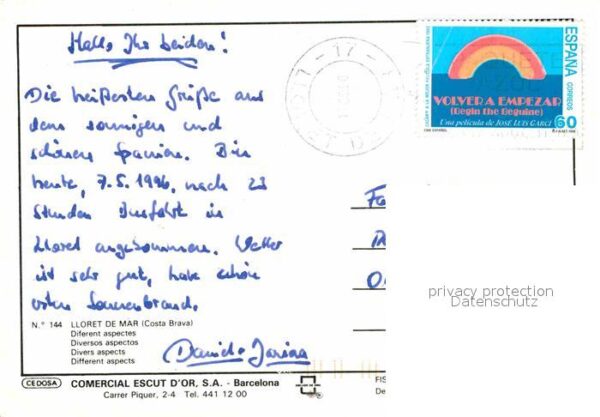 Hallo Ihr beiden!
Die heißesten Grüße aus
dem sonnigen und
schönen Spanien. Bin
heute, 7.5.1996, nach 23
Stunden Busfahrt in
Lloret angekommen. Wetter
ist sehr gut, habe schon
ersten Sonnenbrand.
N.° 144 LLORET DE MAR (Costa Brava)
Diferent aspectes
Diversos aspectos
Divers aspects
Different aspects
CEDOSA
COMERCIAL ESCUT D'OR, S.A. - Barcelona
Carrer Piquer, 2-4 Tel. 441 12 00
17
ESPAÑA
CORREOS
VOLVER A EMPEZAR
(Begin the Beguine)
60
Una película de JOSÉ LUIS GARCI
privacy protection
Datenschutz
FIS
De